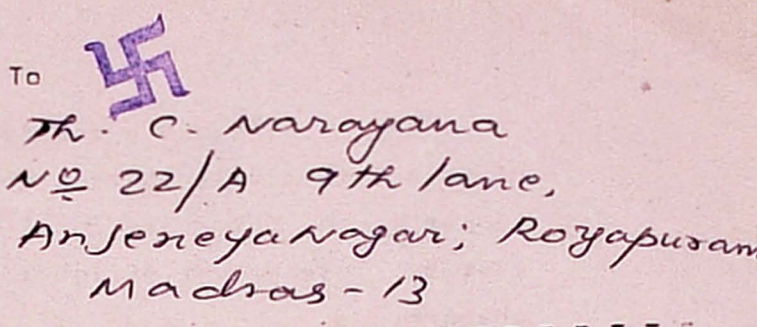 To
Th. C. Narayana
No 22/A 9th lane,
Anjeneya Nagar; Royapuram
Madras - 13